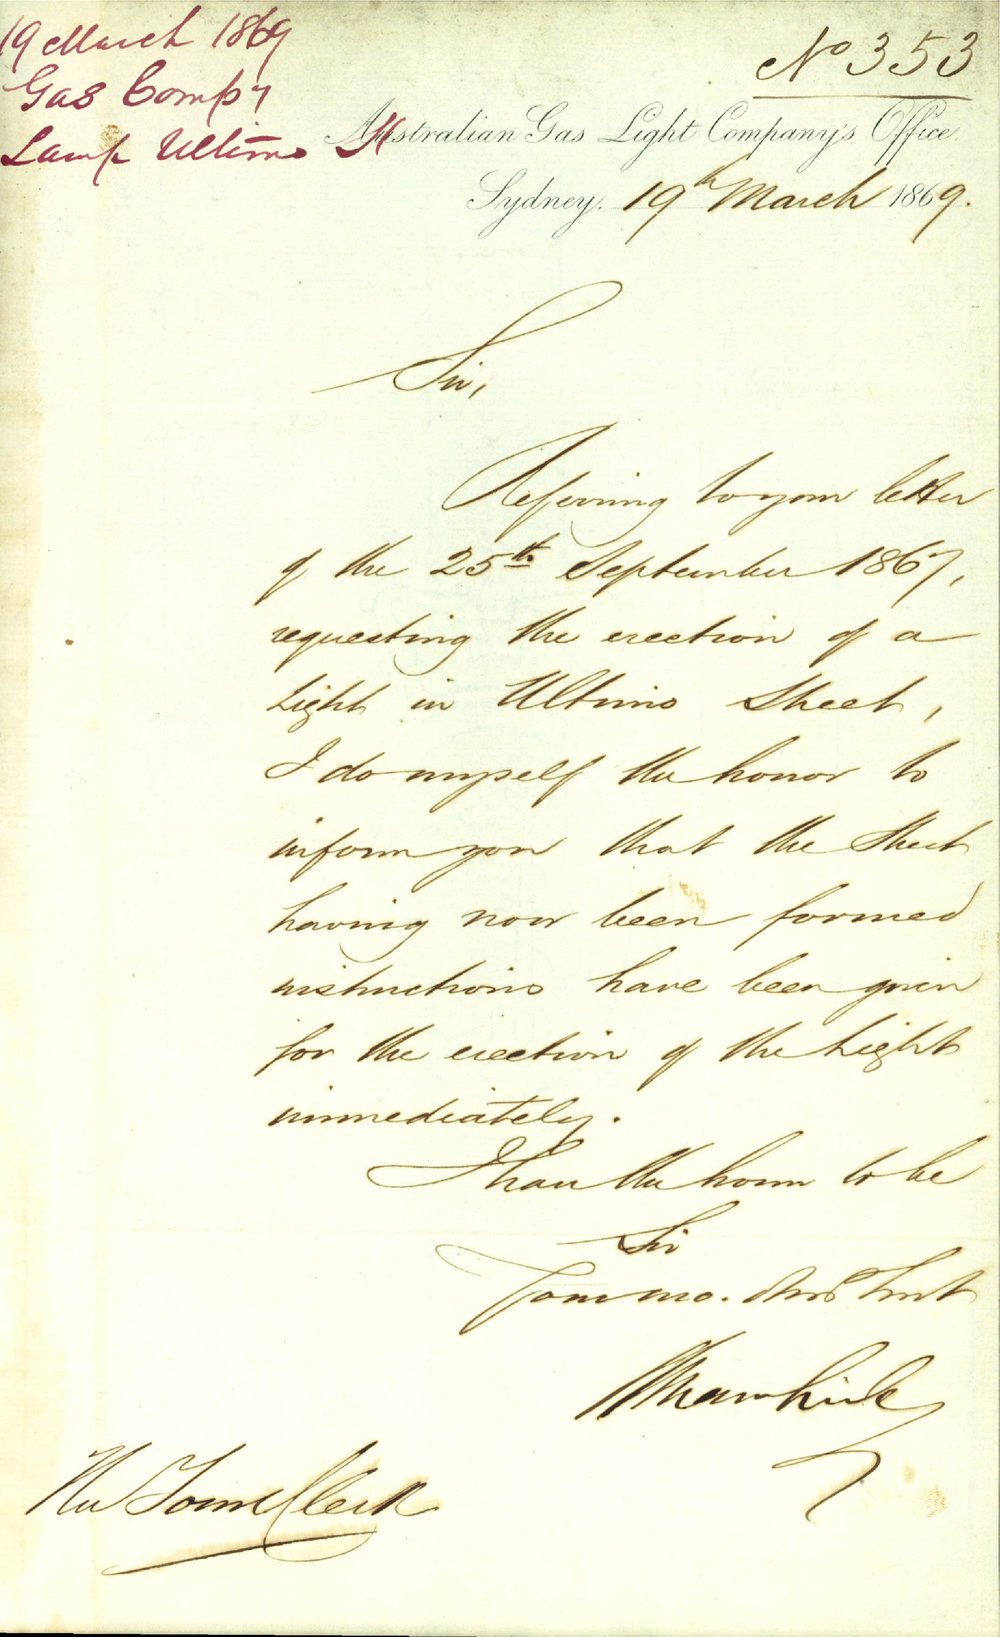 19 March 1869
Gas Compy
Lamp Ultimo St
No 353
Australian Gas Light Company's Office.
Sydney. 19th March 1869.
Sir,
Referring to your letter
of the 25th September 1867,
requesting the erection of a
Light in Ultimo Street,
I do myself the honor to
inform you that the Street
having now been formed
instructions have been given
for the erection of the Light
immediately.
I have the honor to be
Sir
Your mo. Obdt Servt
The Town Clerk